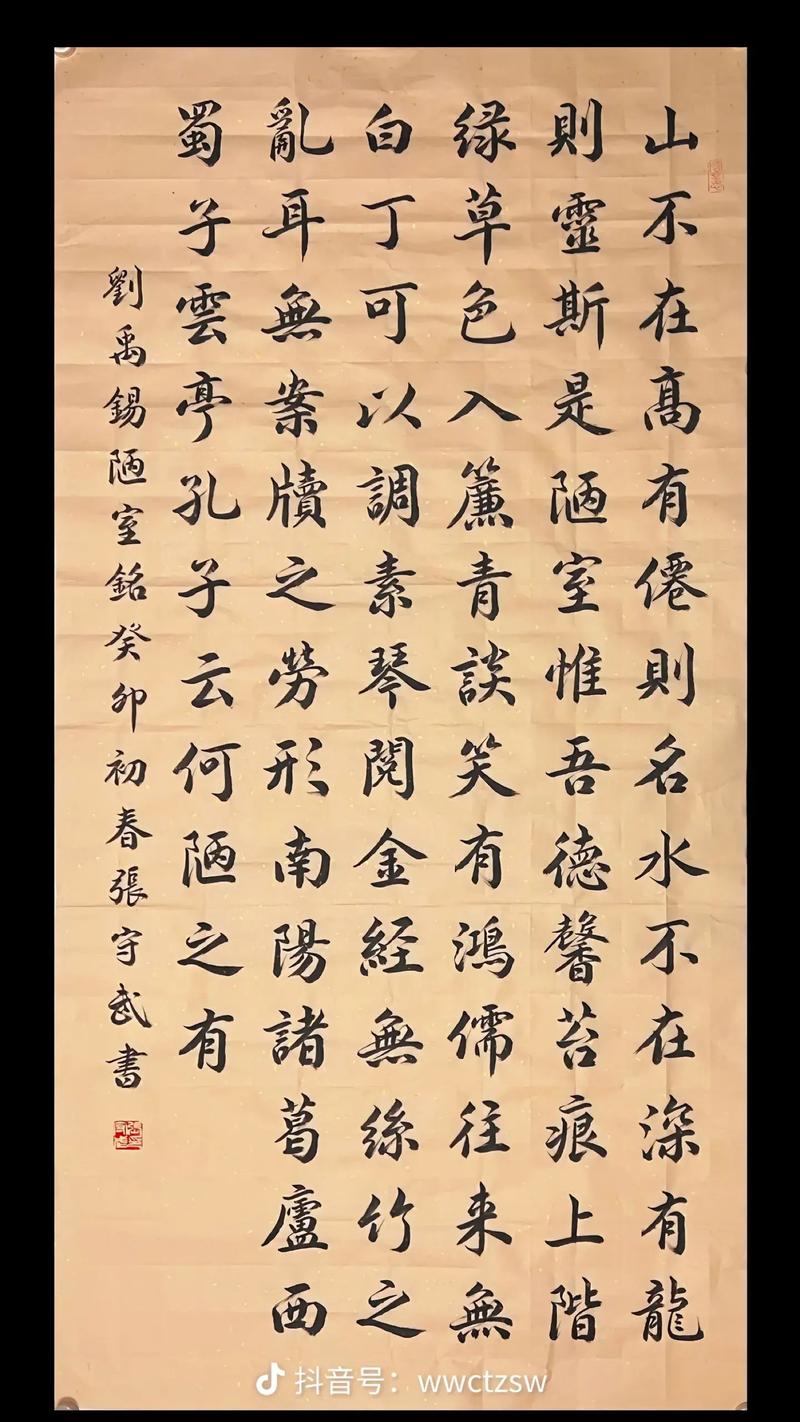 山不在高有僊則名水不在深有龍
則靈斯是陋室惟吾德馨苔痕上階
绿草色入簾青談笑有鴻儒往来無
白丁可以調素琴閲金経無絲竹之
亂耳無案牘之勞形南陽諸葛廬西
蜀子雲亭孔子云何陋之有
劉禹錫陋室銘癸卯初春張守武書
抖音号：wwctzsw